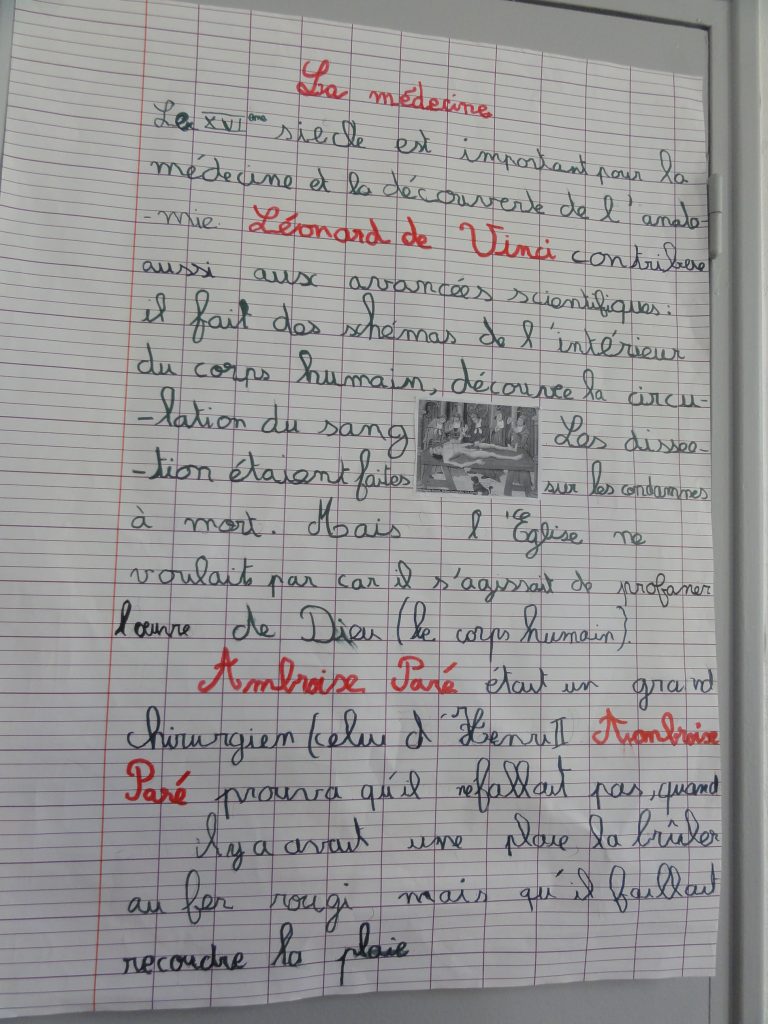 La médecine
Le XVIème siècle est important pour la
médecine et la découverte de l'anato-
-mie. Léonard de Vinci contribue
aussi aux avancées scientifiques :
il fait des schémas de l'intérieur
du corps humain, découvre la circu-
-lation du sang Les dissec-
-tion étaient faites sur les condamnés
à mort. Mais l'Eglise ne
voulait par car il s'agissait de profaner
l'œuvre de Dieu (le corps humain).
Ambroise Paré était un grand
chirurgien (celui d'Henri II Ambroise
Paré prouva qu'il nefallait pas, quand
il y a avait une plaie la brûler
au fer rougi mais qu'il faillait
recoudre la plaie